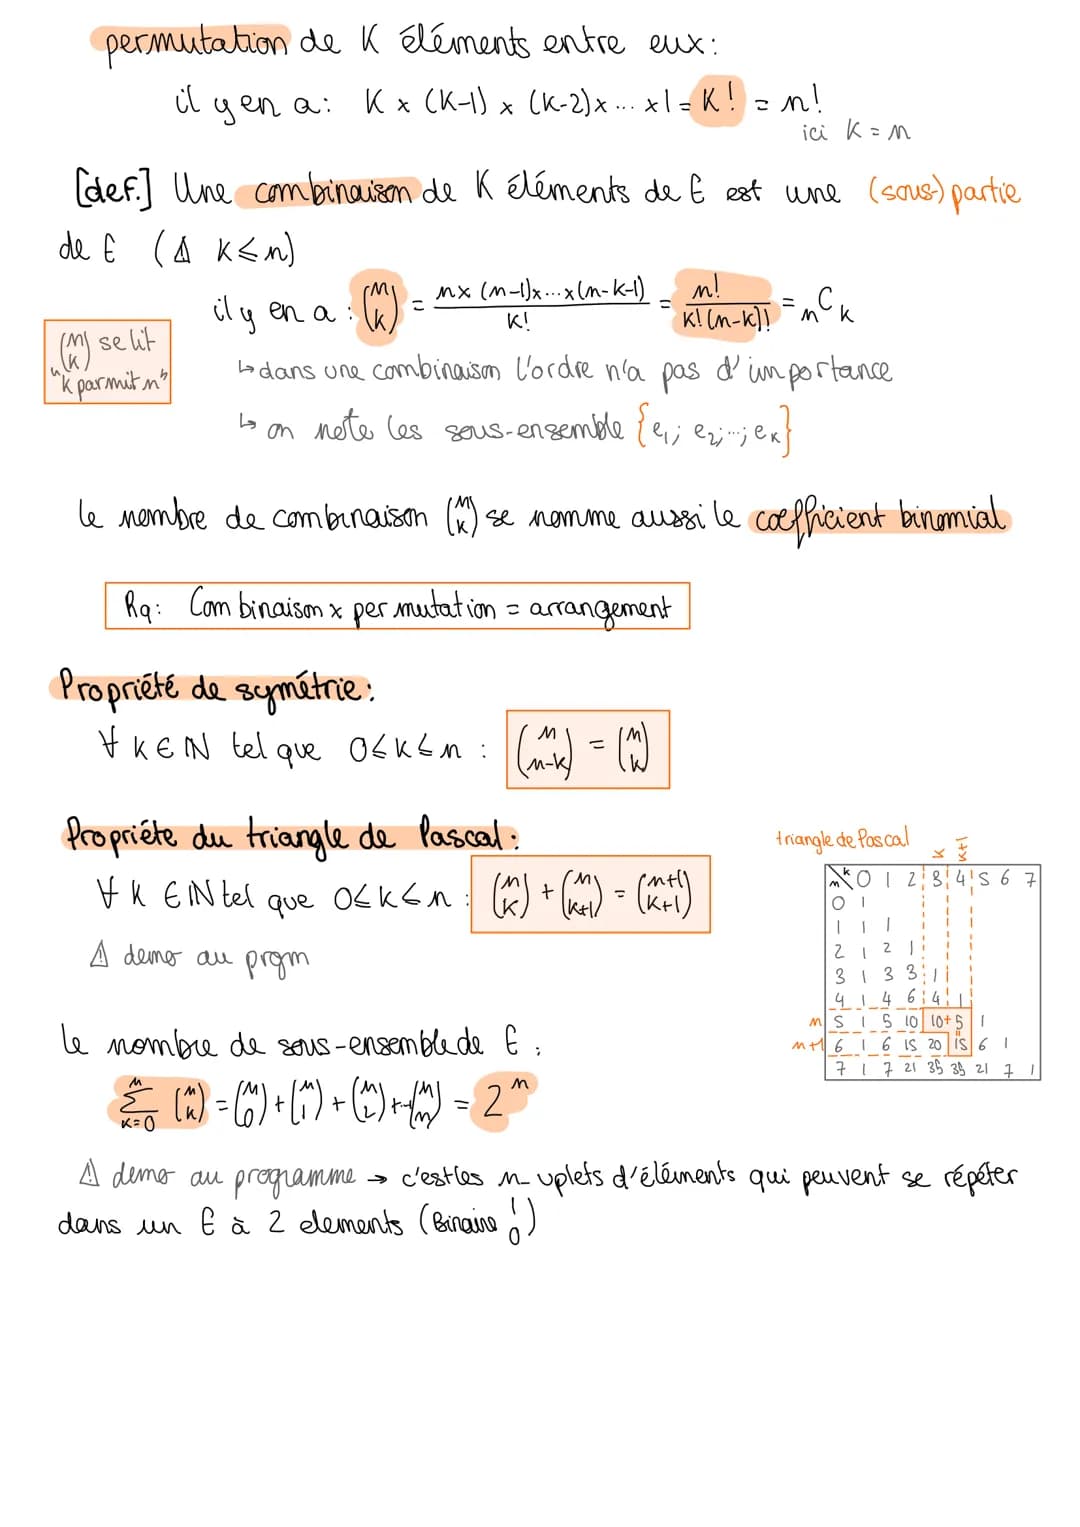 permutation de K éléments entre eux:
il y en a: K x (K-1) x (K-2) x ... x 1 = K! = n!
ici K = n
[def.] Une combinaison de K éléments de E est une (sous-) partie
de E (⚠ K ≤ n)
il y en a : (n k) = n x (n-1) x ... x (n-k-1) / K! = n! / K! (n-K)! = nCk
(n k) se lit
"k parmit n"
↳ dans une combinaison l'ordre n'a pas d'importance
↳ on note les sous-ensemble {e₁; e₂; ...; eₖ}
le nombre de combinaison (n k) se nomme aussi le coefficient binomial
Rq: Combinaison x permutation = arrangement
Propriété de symétrie:
∀ K ∈ ℕ tel que 0 ≤ K ≤ n : (n n-k) = (n k)
Propriéte du triangle de Pascal:
∀ K ∈ ℕ tel que 0 ≤ K ≤ n : (n K) + (n K+1) = (n+1 K+1)
⚠ demo au prgm
triangle de Pascal
K K+1
n k 0 1 2 3 4 5 6 7
0 1
1 1 1
2 1 2 1
3 1 3 3 1
4 1 4 6 4 1
n 5 1 5 10 10 + 5 1
n+1 6 1 6 15 20 15 6 1
7 1 7 21 35 35 21 7 1
le nombre de sous-ensemble de E :
n Σ K=0 (n k) = (n 0) + (n 1) + (n 2) + ... (n n) = 2ⁿ
⚠ demo au programme → c'est les n-uplets d'éléments qui peuvent se répéter
dans un E à 2 elements (Binaire 1 0)